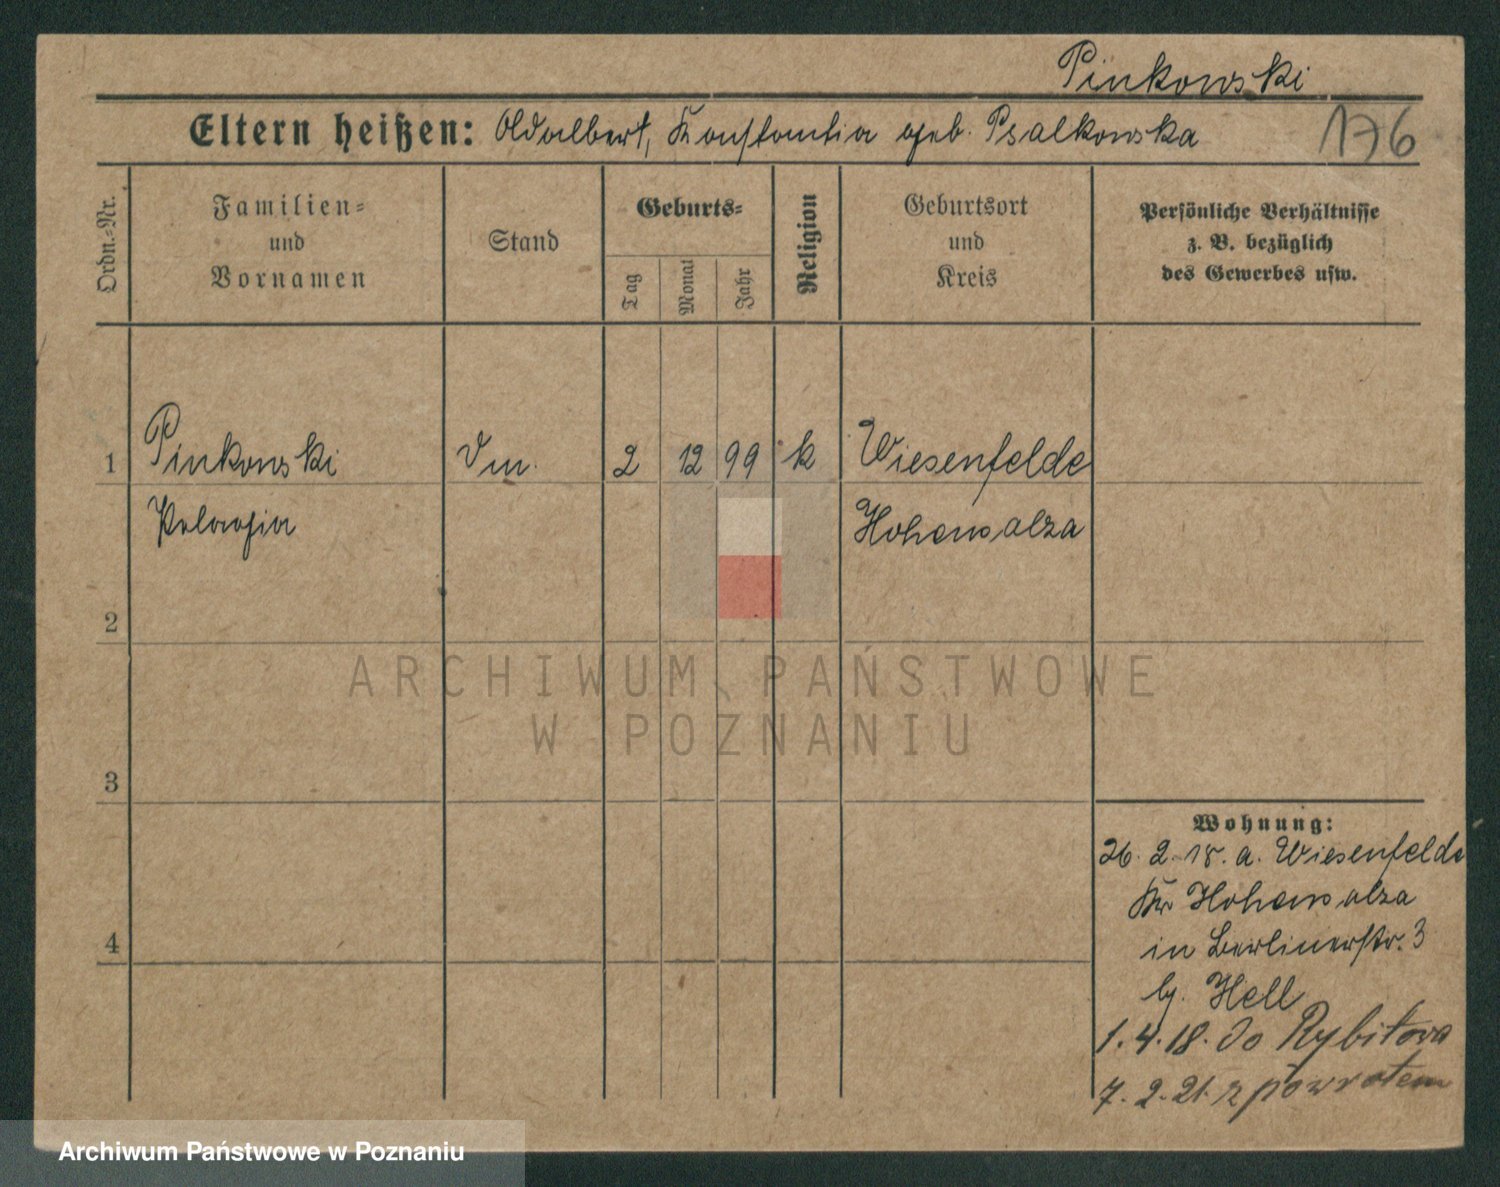 Pinkowski
Eltern heißen: Adalbert, Konstantia geb. Psalkowska
176
Ordn.-Nr.
Familien-
und
Vornamen
Stand
Geburts-
Tag
Monat
Jahr
Religion
Geburtsort
und
Kreis
Persönliche Verhältnisse
z. B. bezüglich
des Gewerbes usw.
1 Pinkowski 2 12 99 k Wiesenfelde
Pelagia Hohensalza
2
ARCHIWUM PAŃSTWOWE
W POZNANIU
3
Wohnung:
26. 2. 18. a. Wiesenfelde
Kr Hohensalza
4
in Berlinerstr. 3
Hell
1. 4. 18. do Rybitwa
7. 2. 21. z powrotem
Archiwum Państwowe w Poznaniu